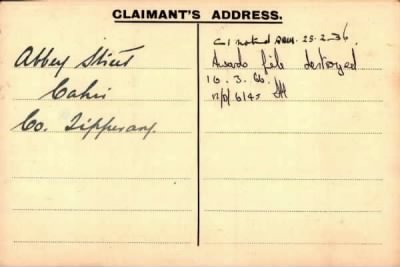 CLAIMANT'S ADDRESS.
Abbey Street
Cahir
Co. Tipperary.
C1 noted 25.2.36
Awards file destroyed
10.3.66.
6145